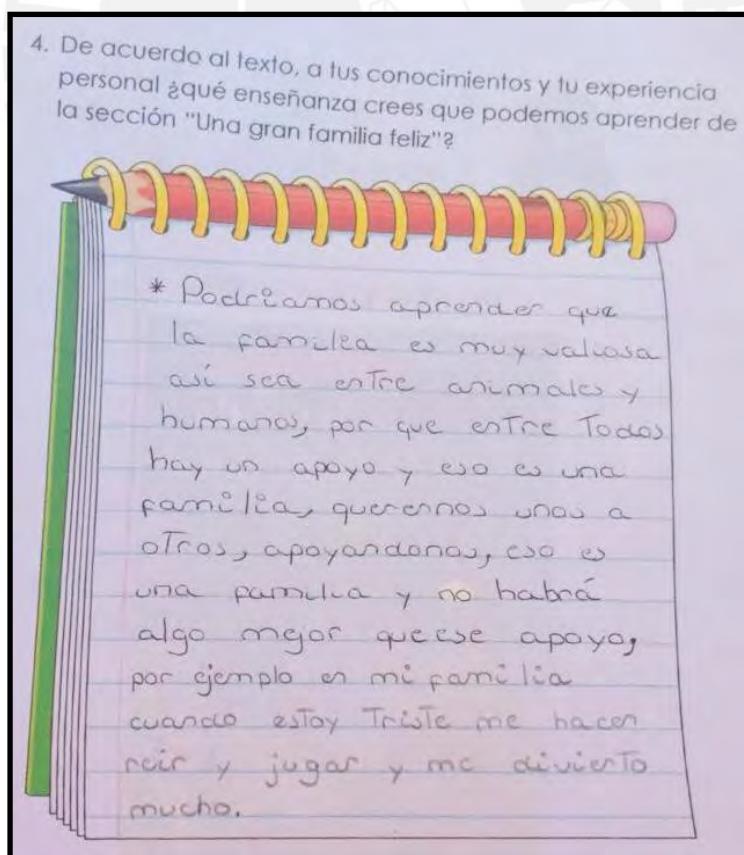 4. De acuerdo al texto, a tus conocimientos y tu experiencia
personal ¿qué enseñanza crees que podemos aprender de
la sección "Una gran familia feliz"?
* Podríamos aprender que
la familia es muy valiosa
así sea entre animales y
humanos, por que entre Todos
hay un apoyo y eso es una
familia, querernos unos a
oTros, apoyandonos, eso es
una familia y no habrá
algo mejor que ese apoyo,
por ejemplo en mi familia
cuando esToy TrisTe me hacen
reir y jugar y me divierTo
mucho.